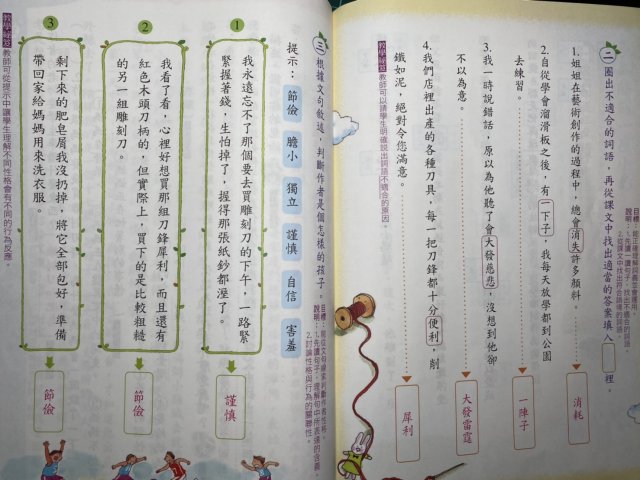 二 圈出不適合的詞語,再從課文中找出適當的答案填入 裡。
1. 姐姐在藝術創作的過程中,總會消失許多顏料。
消耗
2. 自從學會溜滑板之後,有一下子,我每天放學都到公園
去練習。
一陣子
3. 我一時說錯話,原以為他聽了會大發慈悲,沒想到他卻
不以為意。
大發雷霆
4. 我們店裡出產的各種刀具,每一把刀鋒都十分便利,削
鐵如泥,絕對令您滿意。
犀利
教學提醒 教師可以請學生明確說出詞語不適合的原因。
三 根據文句敘述,判斷作者是個怎樣的孩子。
說明:1.先讀句子,理解句中所表達的含義。
2.討論性格與行為的關聯性。
提示: 節儉 膽小 獨立 謹慎 自信 害羞
1
我永遠忘不了那個要去買雕刻刀的下午,一路緊
緊握著錢,生怕掉了,握得那張紙鈔都溼了。
謹慎
2
我看了看,心裡好想買那組刀鋒犀利,而且還有
紅色木頭刀柄的,但實際上,買下的是比較粗糙
的另一組雕刻刀。
節儉
3
剩下來的肥皂屑我沒扔掉,將它全部包好,準備
帶回家給媽媽用來洗衣服。
節儉
教學提醒 教師可從提示中讓學生理解不同性格會有不同的行為反應。